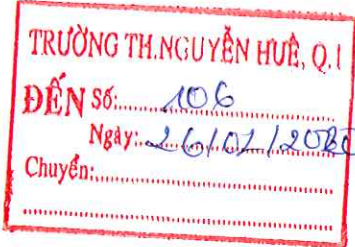 TRƯỜNG TH.NGUYỄN HUỆ, Q.1
ĐẾN Số:.....106
Ngày:...26/02/2020
Chuyển: